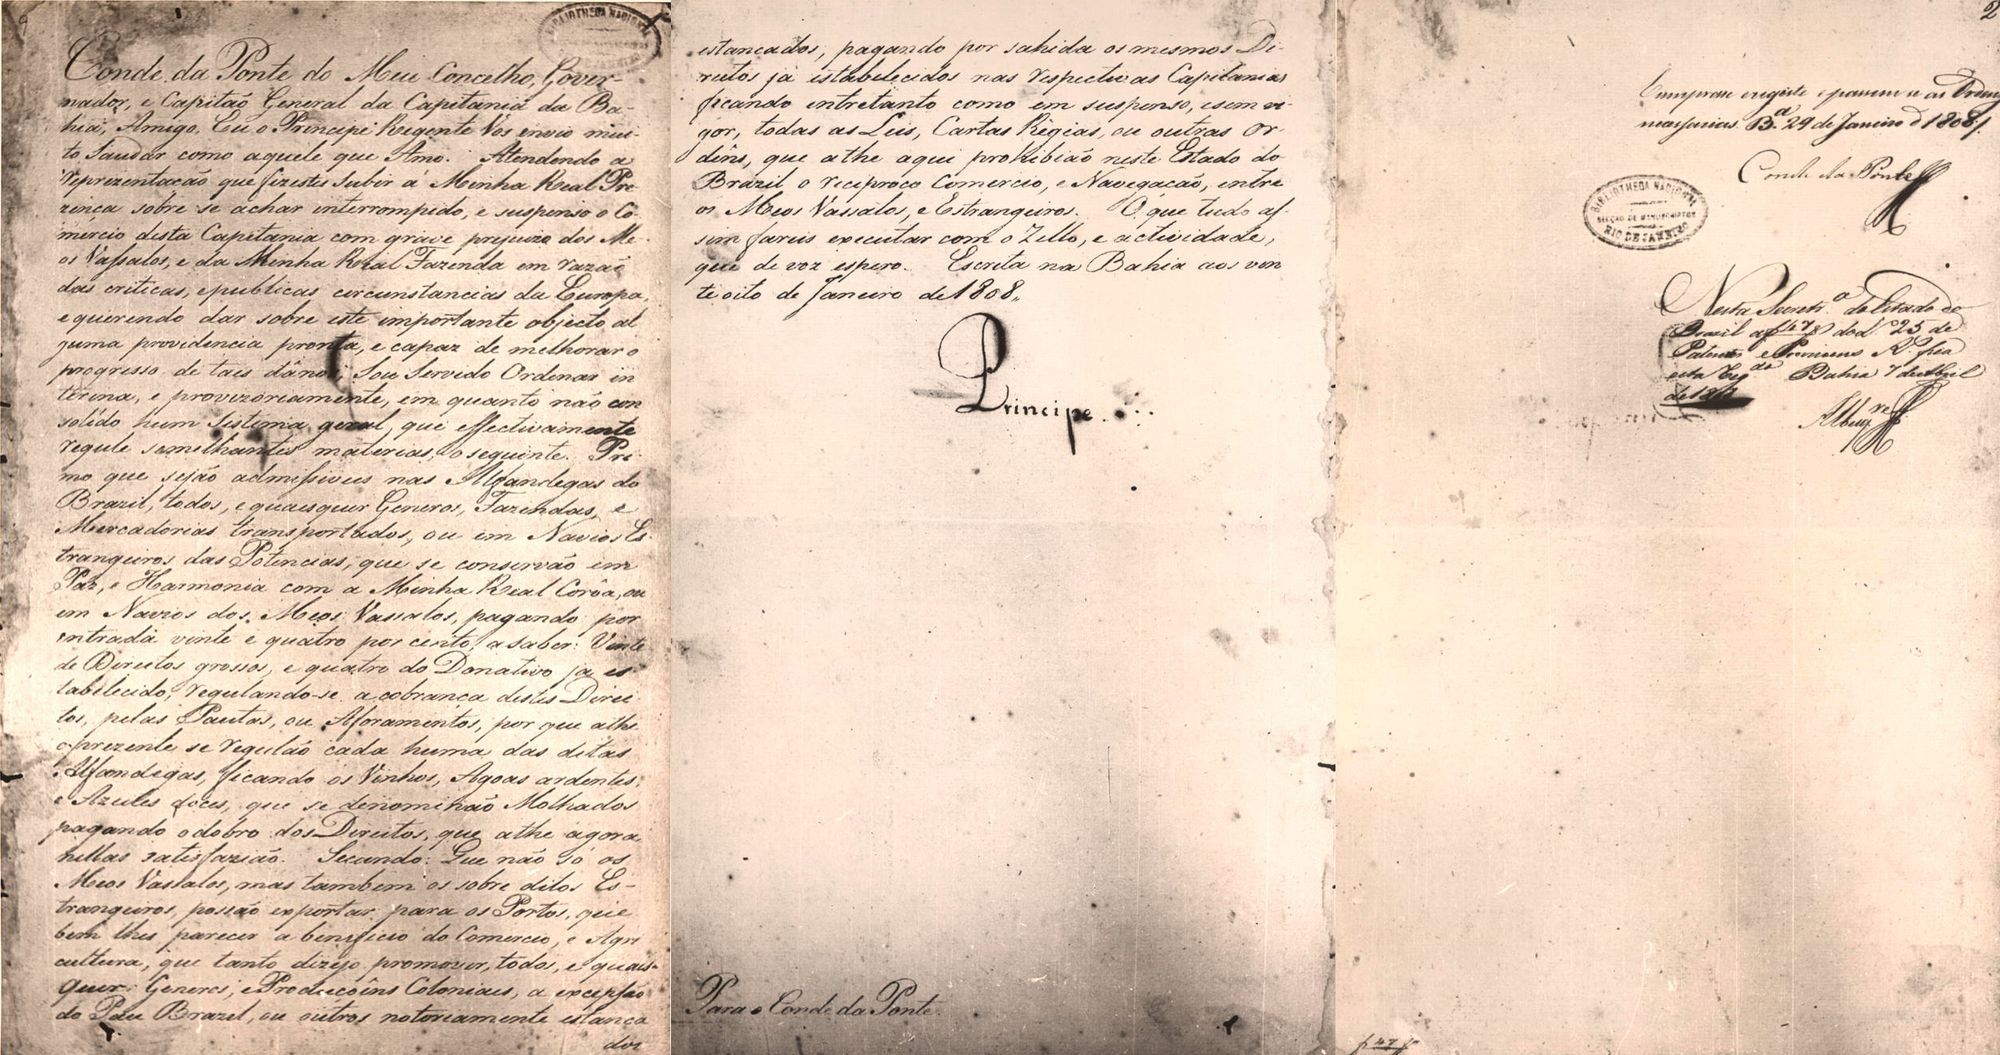 Conde da Ponte do Meu Concelho, Gover-
nador, e Capitão General da Capitania da Ba-
hia, Amigo. Eu o Principe Regente Vos envio mui-
to Saudar como aquele que Amo. Atendendo a
reprizentacão que fizestes subir á Minha Real Pre-
zinca sobre se achar interrompido, e suspenso o Co-
mercio desta Capitania com grave prejuizo dos Me-
os Vassalos, e da Minha Real Fazenda em razaõ
das criticas, e publicas circunstancias da Europa,
e querendo dar sobre este importante objecto al
guma providencia pronta, e capaz de melhorar o
progresso de taes danos; Sou Servido Ordenar in
terina, e provizoriamente, em quanto não con
solido hum Sistema geral, que effectivamente
regule semelhantes materias, o seguinte. Pri-
mo que sejão admissiveis nas Alfandegas do
Brazil, todos, e quaesquer Generos, Fazendas, e
Mercadorias transportados, ou em Navios Es-
trangeiros das Potencias, que se conservão em
Paz, e Harmonia com a Minha Real Corôa, ou
em Navios dos Meos Vassalos, pagando por
entrada vinte e quatro por cento, a saber: Vinte
de Direitos grossos, e quatro do Donativo ja es
tabelecido, regulando-se a cobrança destes Direi-
tos, pelas Pautas, ou Aforamentos, por que athe
o prezente se regulão cada huma das ditas
Alfandegas, ficando os Vinhos, Agoas ardentes,
e Azeites doces, que se denominão Molhados
pagando o dobro dos Direitos, que athe agora
nellas satisfazião. Secundo: Que não só os
Meos Vassalos, mas tambem os sobre ditos Es-
trangeiros, possão exportar para os Portos, que
bem lhes parecer a beneficio do Comercio, e Agri
cultura, que tanto dezejo promover, todos, e quais-
quer Generos, e Producoins Coloniaes, a excepsão
do Pau Brazil, ou outros notoriamente estanca
dos
estancados, pagando por sahida os mesmos Di-
reitos ja estabelecidos nas respectivas Capitanias
ficando entretanto como em suspenso, e sem vi-
gor, todas as Leis, Cartas Régias, ou outras Or-
dens, que athe aqui prohibião neste Estado do
Brazil, o reciproco Comercio, e Navegacão, entre
os Meos Vassalos, e Estrangeiros. O que tudo as-
sim fareis executar com o Zello, e actividade,
que de voz espero. Escrita na Bahia aos vin
te oito de Janeiro de 1808.
Principe
Para o Conde da Ponte.
2
Cumprase registe e passem se as Ordens
necessarias. B.ª 29 de Janeiro d 1808
Conde da Ponte
BIBLIOTHECA NACIONAL
SECÇÃO DE MANUSCRIPTOS
RIO DE JANEIRO
Nesta Secret.ª de Estado do
Brazil a f 47 do L.º 25 de
Patentes e Provisoens R.s fica
esta Reg.da Bahia 7 de Abril
f 47